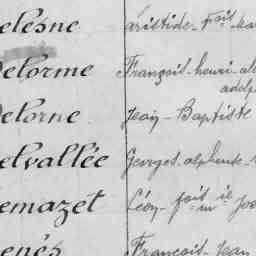 elesne Aristide - fois
elorme François - henri
adolp
elorne Jean - Baptiste
elvallée Georges - alphonse
emazet Léon - fois
enés François - Jean